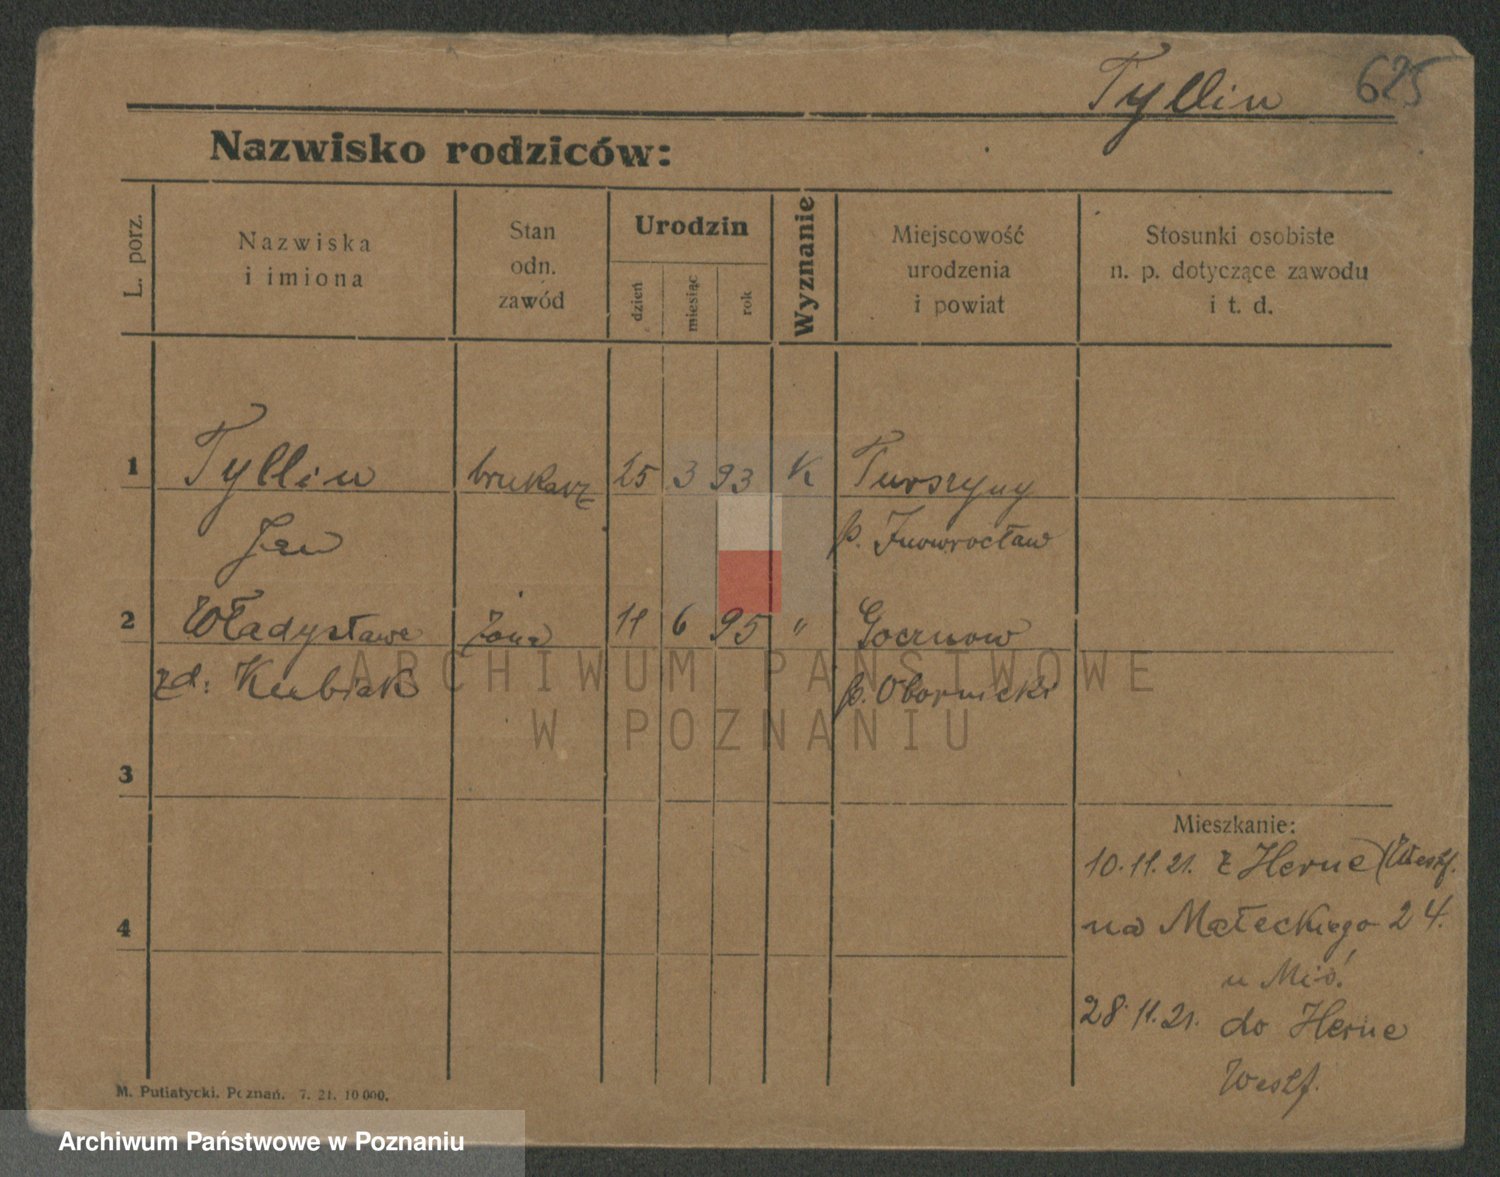 Tyllin 625
Nazwisko rodziców:
L. porz.
Nazwiska
i imiona
Stan
odn.
zawód
Urodzin
dzień
miesiąc
rok
Wyznanie
Miejscowość
urodzenia
i powiat
Stosunki osobiste
n. p. dotyczące zawodu
i t. d.
1 Tyllin brukarz 25 3 93 K Turszyny
Jan p. Inowrocław
2 Władysława żona 11 6 95 " Gocznow
zd: Kubiak p. Obornicki
ARCHIWUM PAŃSTWOWE
W POZNANIU
3
Mieszkanie:
10.11.21. z Herne (Westf.
4 na Małeckiego 24.
u Miś.
28.11.21. do Herne
Westf.
M. Putiatycki, Poznań. 7. 21. 10 000.
Archiwum Państwowe w Poznaniu